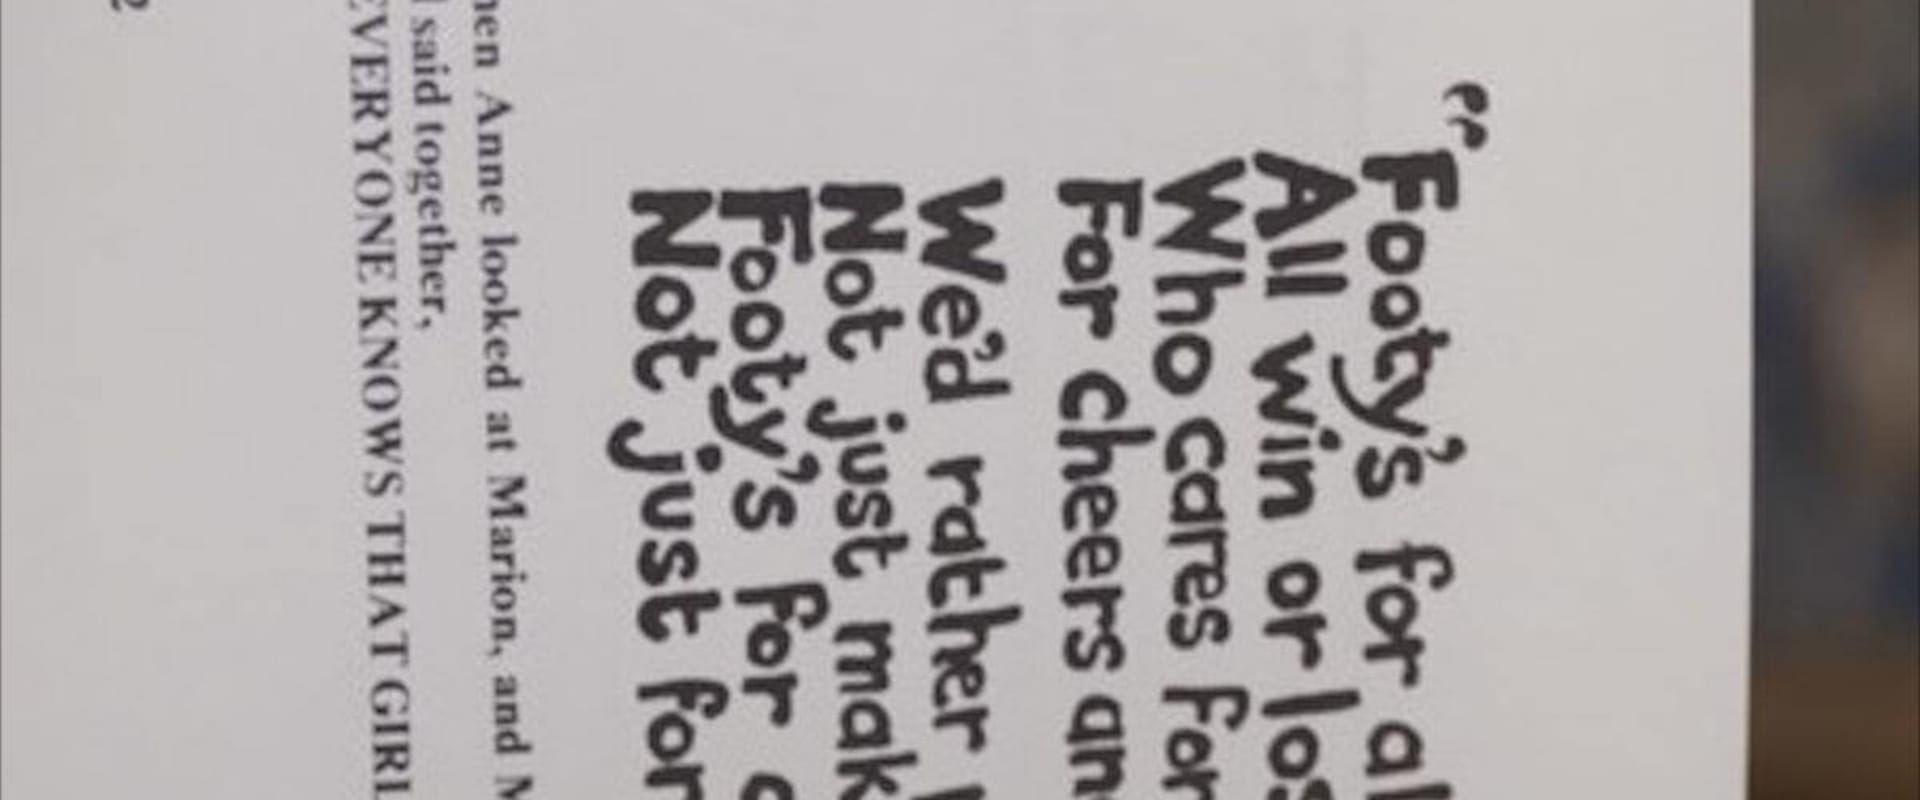 “Footy's for al
All win or los
Who cares for
For cheers an
We'd rather
Not just mak
Footy's for
Not just for
hen Anne looked at Marion, and M
said together,
EVERYONE KNOWS THAT GIRL
2